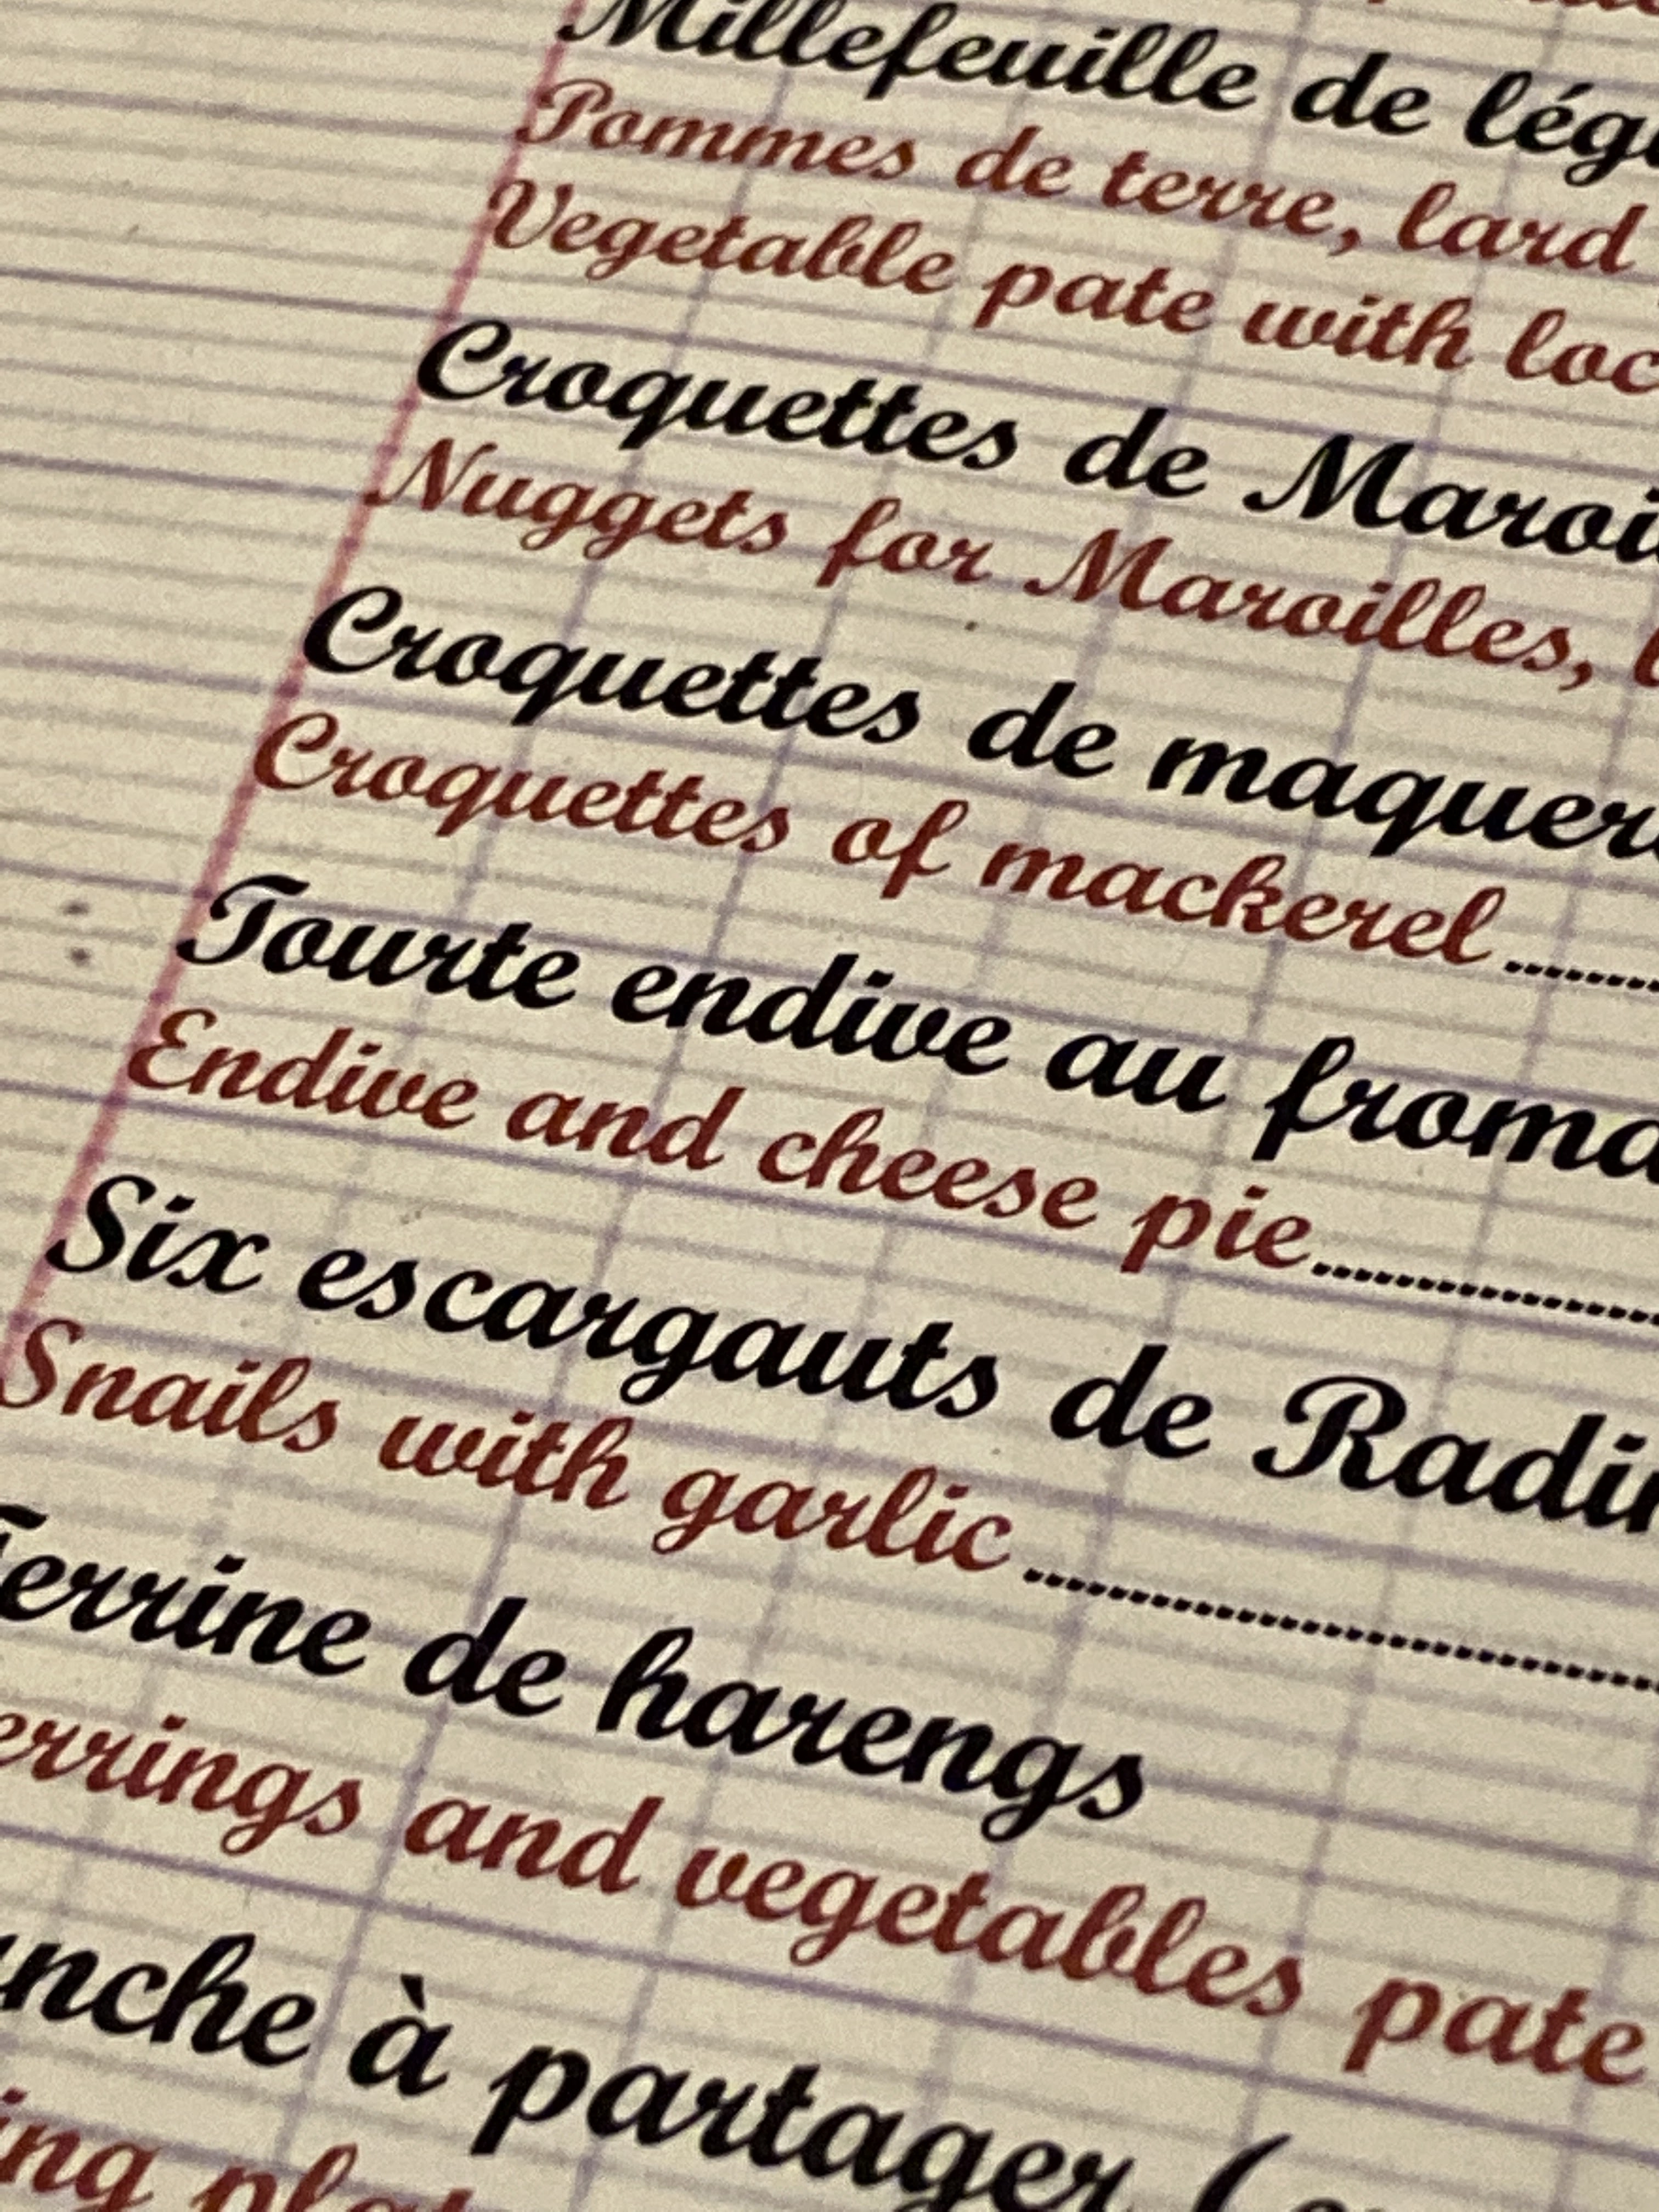 Millefeuille de
Pommes de terre, lard
Vegetable pate with
Croquettes de
Nuggets for Maroilles,
Croquettes de
Croquettes of mackerel
Tourte endive au
Endive and cheese pie
Six escargauts de
Snails with garlic
Terrine de harengs
and vegetables pate
à partager (